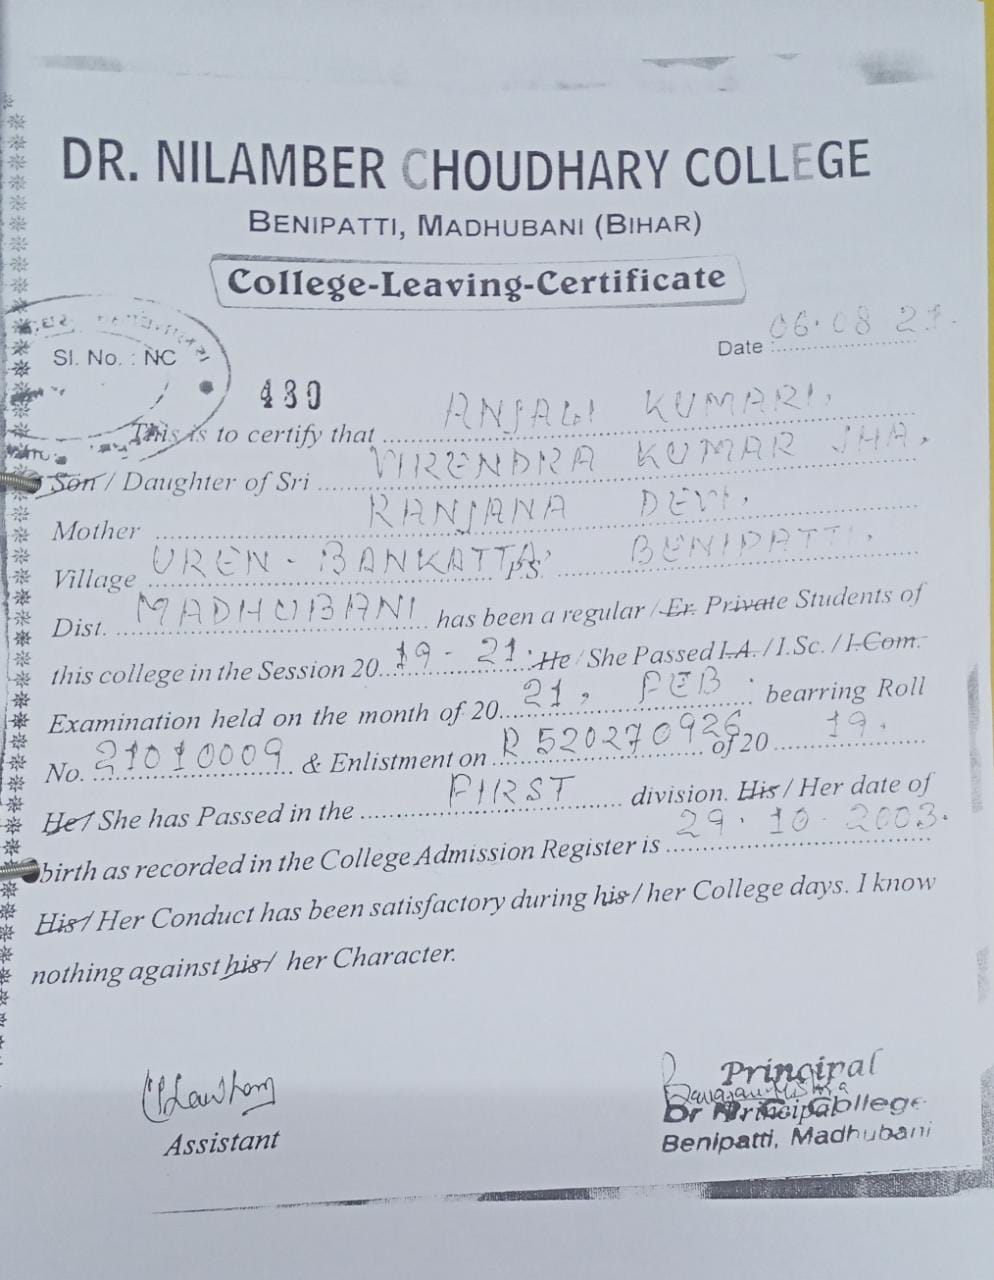 DR. NILAMBER CHOUDHARY COLLEGE
BENIPATTI, MADHUBANI (BIHAR)
College-Leaving-Certificate
Date 06.08 21.
Sl. No. : NC
430
This is to certify that ANJALI KUMARI.
Son / Daughter of Sri VIRENDRA KUMAR JHA.
Mother RANJANA DEVI.
Village UREN - BANKATTA, P.S. BENIPATTI.
Dist. MADHUBANI has been a regular / Er. Private Students of
this college in the Session 20 19 - 21. He / She Passed I.A. / I.Sc. / I-Com.
Examination held on the month of 20 21, FEB. bearring Roll
No. 21010009 & Enlistment on R 520270926 of 20 19.
He / She has Passed in the FIRST division. His / Her date of
birth as recorded in the College Admission Register is 29. 10. 2003.
His / Her Conduct has been satisfactory during his / her College days. I know
nothing against his / her Character.
Assistant
Principal
Principal
Benipatti, Madhubani